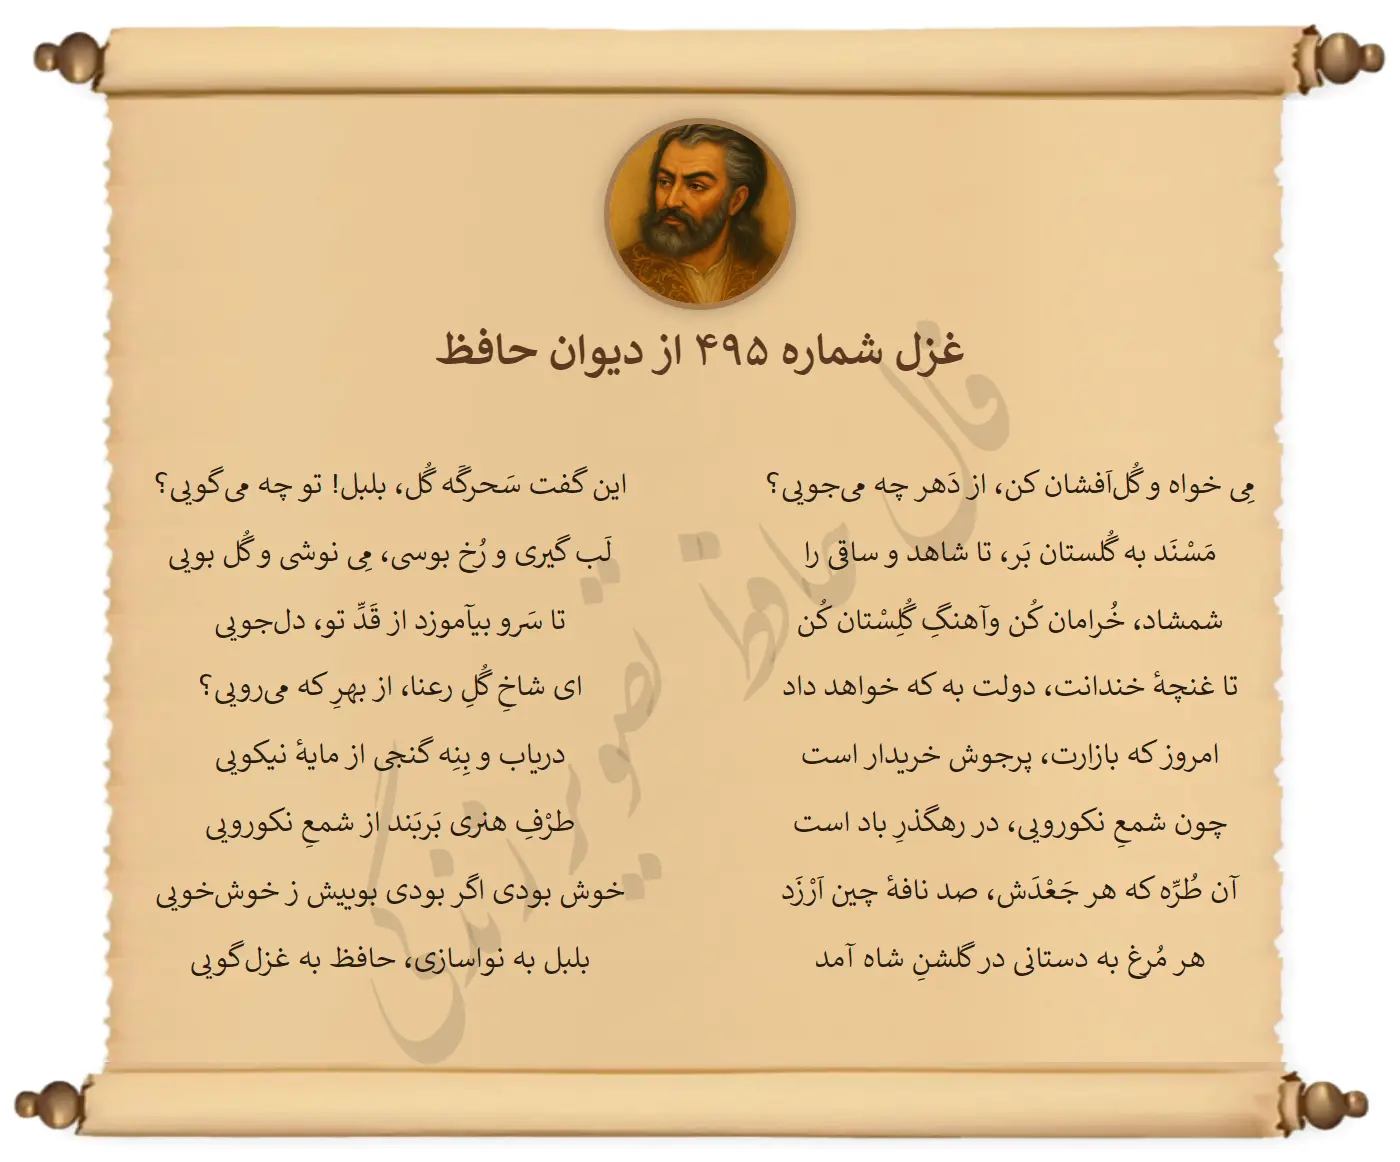 غزل شماره ۴۹۵ از دیوان حافظ
مِی خواه و گُل‌اَفشان کن، از دَهر چه می‌جویی؟
این گفت سَحرگَه گُل، بلبل! تو چه می‌گویی؟
مَسْنَد به گُلستان بَر، تا شاهد و ساقی را
لَب گیری و رُخ بوسی، مِی نوشی و گُل بویی
شمشاد، خُرامان کُن وآهنگِ گُلِسْتان کُن
تا سَرو بیآموزد از قَدِّ تو، دل‌جویی
تا غنچهٔ خندانت، دولت به که خواهد داد
ای شاخِ گُلِ رعنا، از بهرِ که می‌رویی؟
امروز که بازارت، پرجوش خریدار است
دریاب و بِنِه گنجی از مایهٔ نیکویی
چون شمعِ نکورویی، در رهگذرِ باد است
طرْفِ هنری بَربَند از شمعِ نکورویی
آن طُرِّه که هر جَعْدَش، صد نافهٔ چین اَرْزَد
خوش بودی اگر بودی بوییش ز خوش‌خویی
هر مُرغ به دستانی در گلشنِ شاه آمد
بلبل به نواسازی، حافظ به غزل‌گویی
فال حافظ تصویر زندگی